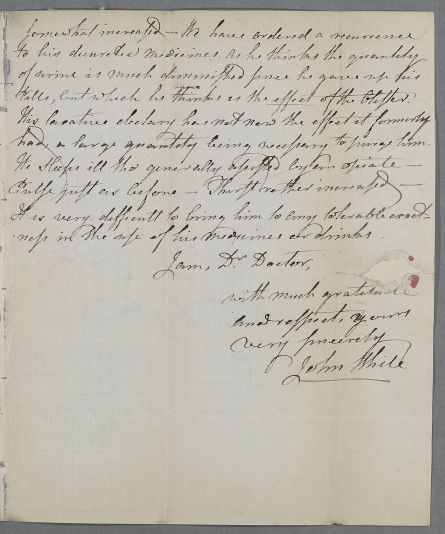 somewhat increased — We have ordered a recurrence
to his diuretic medicines, as he thinks the quantity
of urine is much diminished since he gave up his
Pills, but which he thinks is the effect of the blister.
His laxative electary has not now the effect it formerly
had, a large quantity being necessary to purge him.
He sleeps ill tho' generally assisted by an opiate —
Pulse just as before — Thirst rather increased —
It is very difficult to bring him to any tolerable exact-
ness in the use of his medicines or drinks.
I am, Dr Doctor,
with much gratitude
and respect, yours
very sincerely
John White